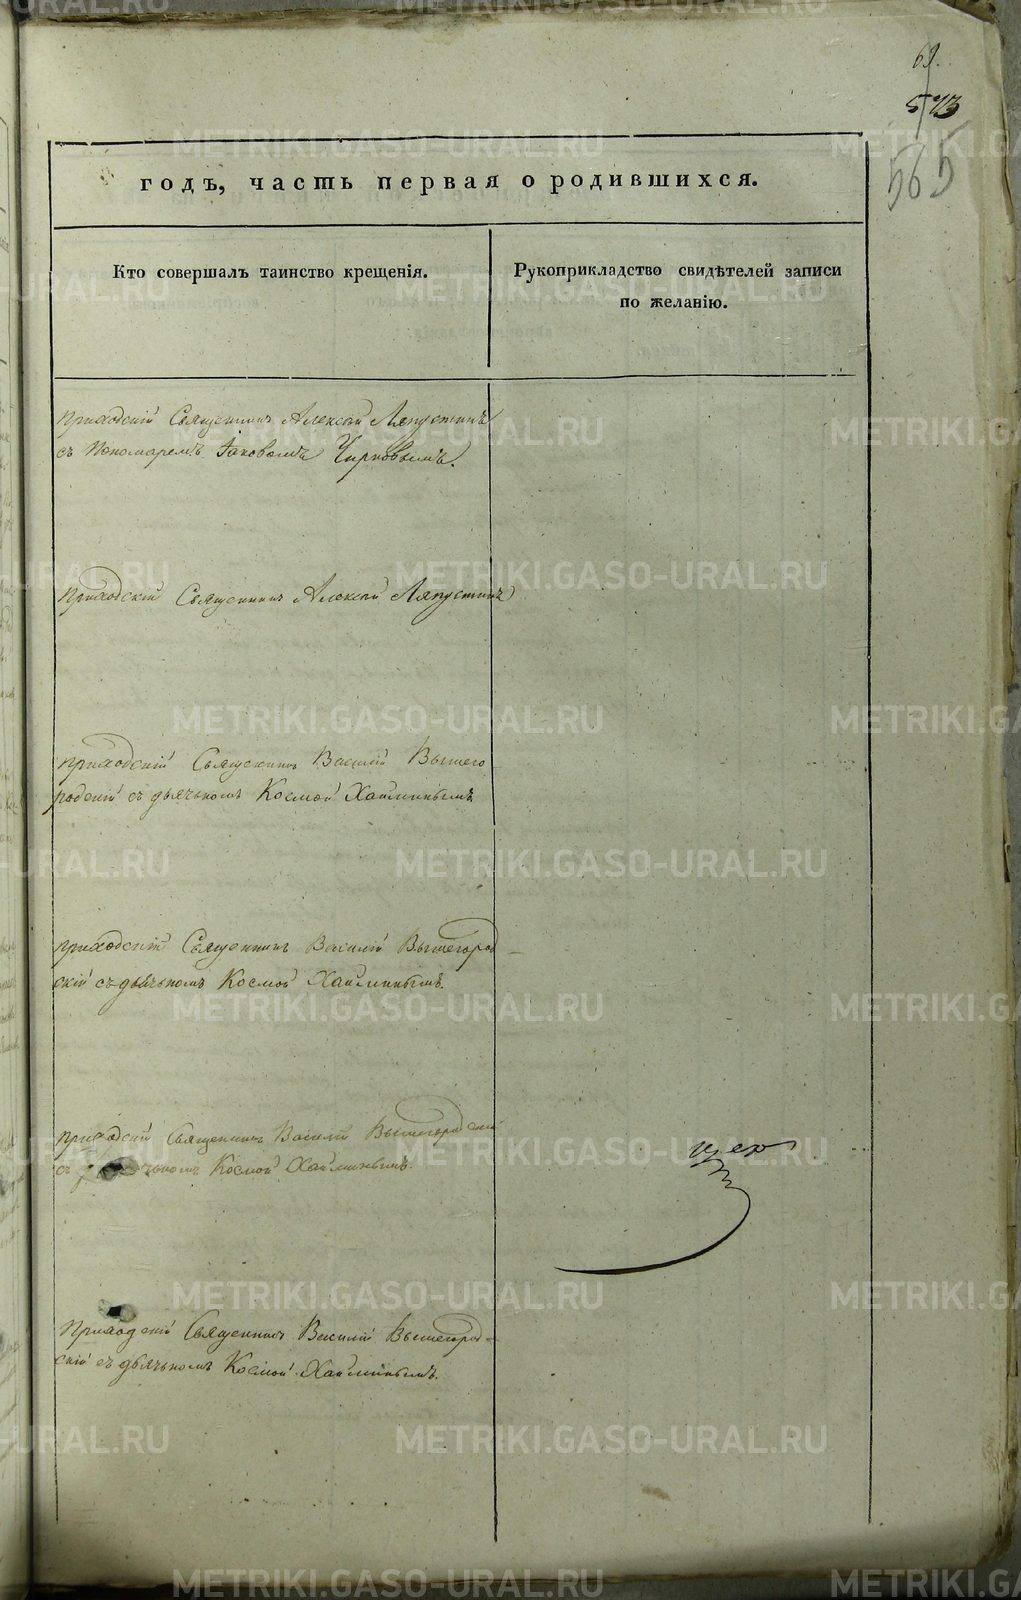 69.
573
565
годъ, часть первая о родившихся.
Кто совершалъ таинство крещенія.
Рукоприкладство свидѣтелей записи
по желанію.
Приходскій Священникъ Алексѣй Ляпустинъ
съ Пономаремъ Іаковомъ Чирковымъ.
Приходскій Священникъ Алексѣй Ляпустинъ
приходскій Священникъ Василій Вышего
родскій съ дьячькомъ Космой Хайлинымъ
приходскій Священникъ Василій Вышегород
скій съ дьячькомъ Космой Хайлинымъ.
приходскій Священникъ Василій Вышегородскій
съ дьячькомъ Космой Хайлинымъ.
Приходскій Священникъ Василій Вышегород-
скій съ дьячькомъ Космой Хайлинымъ.
METRIKI.GASO-URAL.RU